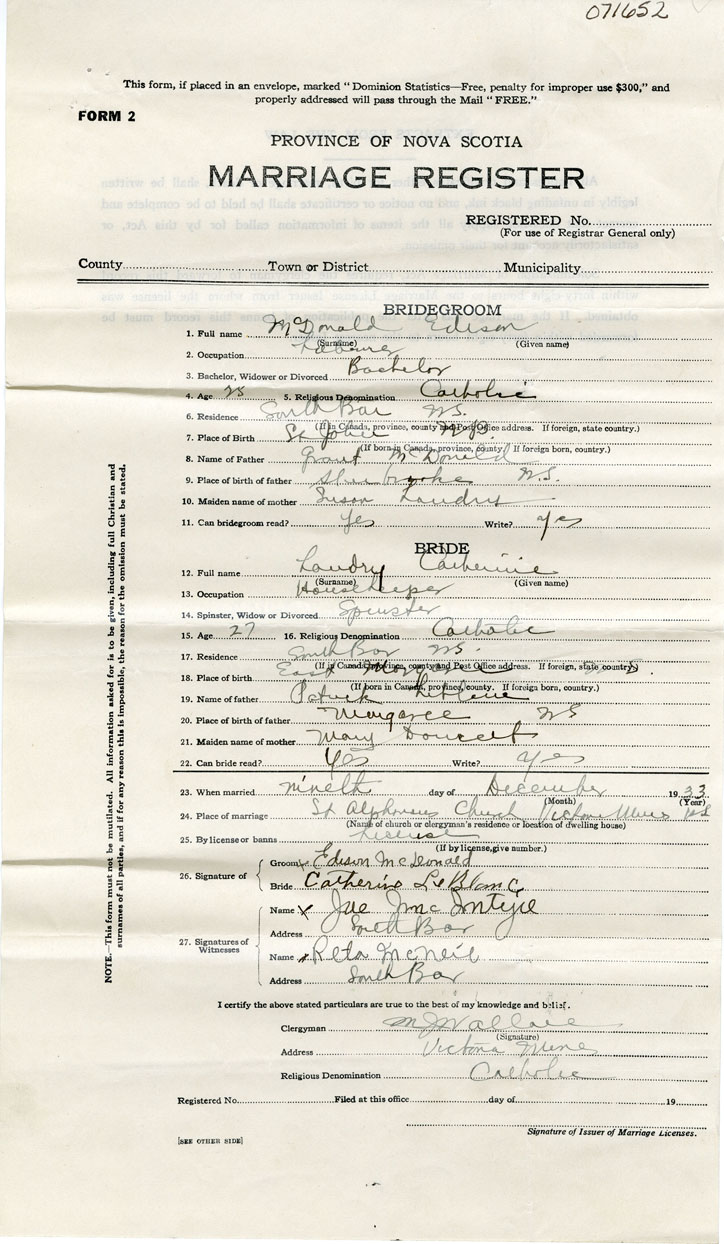 071652
This form, if placed in an envelope, marked "Dominion Statistics—Free, penalty for improper use $300," and
properly addressed will pass through the Mail "FREE."
FORM 2
PROVINCE OF NOVA SCOTIA
MARRIAGE REGISTER
REGISTERED No.
(For use of Registrar General only)
County Town or District Municipality
BRIDEGROOM
1. Full name McDonald Edison
(Surname) (Given name)
2. Occupation Labourer
3. Bachelor, Widower or Divorced Bachelor
4. Age 25 5. Religious Denomination Catholic
6. Residence South Bar N.S.
(If in Canada, province, county and Post Office address. If foreign, state country.)
7. Place of Birth St John N.B.
(If born in Canada, province, county. If foreign born, country.)
8. Name of Father Grant McDonald
9. Place of birth of father N.S.
10. Maiden name of mother Susan Landry
11. Can bridegroom read? Yes Write? yes
BRIDE
12. Full name Landry Catherine
(Surname) (Given name)
13. Occupation Housekeeper
14. Spinster, Widow or Divorced Spinster
15. Age 27 16. Religious Denomination Catholic
17. Residence South Bar N.S.
(If in Canada, province, county and Post Office address. If foreign, state country.)
18. Place of birth East Margaree N.S.
(If born in Canada, province, county. If foreign born, country.)
19. Name of father Patrick LeBlanc
20. Place of birth of father Margaree N.S
21. Maiden name of mother Mary Doucett
22. Can bride read? Yes Write? yes
23. When married nineth day of December 1933
(Month) (Year)
24. Place of marriage St Alphonsus Church Victoria Mines N.S
(Name of church or clergyman's residence or location of dwelling house)
25. By license or banns License
(If by license, give number.)
26. Signature of Groom x Edison McDonald
Bride Catherine LeBlanc
27. Signatures of Witnesses Name x Joe McIntyre
Address South Bar
Name x Reta McNeil
Address South Bar
I certify the above stated particulars are true to the best of my knowledge and belief.
Clergyman M J Wallace
(Signature)
Address Victoria Mines
Religious Denomination Catholic
Registered No. Filed at this office day of 19
Signature of Issuer of Marriage Licenses.
[SEE OTHER SIDE]
NOTE.—This form must not be mutilated. All information asked for is to be given, including full Christian and
surnames of all parties, and if for any reason this is impossible, the reason for the omission must be stated.